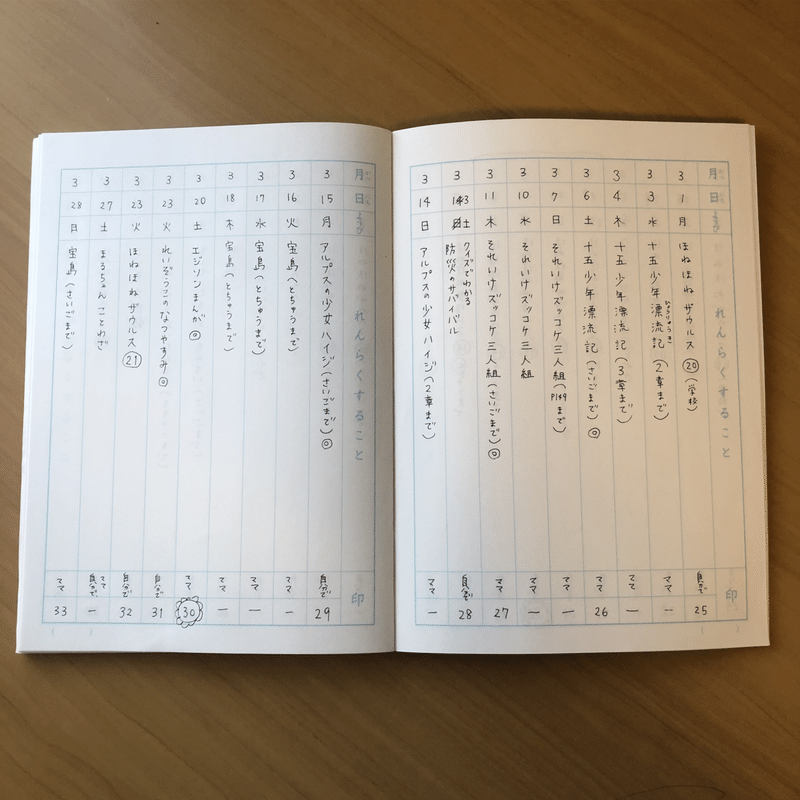 月 日 ようび れんらくすること 印
3 1 月 ほねほねザウルス ⑳ (学校) 自分で 25
3 3 水 十五少年漂流記(2章まで) ひょうりゅうき ママ ー
3 4 木 十五少年漂流記(3章まで) ママ ー
3 6 土 十五少年漂流記(さいごまで)◎ ママ 26
3 7 日 それいけズッコケ三人組(P149まで) ママ ー
3 10 水 それいけズッコケ三人組 ママ ー
3 11 木 それいけズッコケ三人組(さいごまで)◎ ママ 27
3 13 土 クイズでわかる
防災のサバイバル 自分で 28
3 14 日 アルプスの少女ハイジ(2章まで) ママ ー
月 日 れんらくすること 印
3 15 月 アルプスの少女ハイジ(さいごまで)◎ 自分で 29
3 16 火 宝島(とちゅうまで) ママ ー
3 17 水 宝島(とちゅうまで) ママ ー
3 18 木 宝島(とちゅうまで) ママ ー
3 20 土 エジソンまんが◎ ママ 30
3 23 火 れいぞうこのなつやすみ◎ 自分で 31
3 23 火 ほねほねザウルス ㉑ 自分で 32
3 27 土 まるちゃん ことわざ 自分で ママ ー
3 28 日 宝島(さいごまで) ママ 33